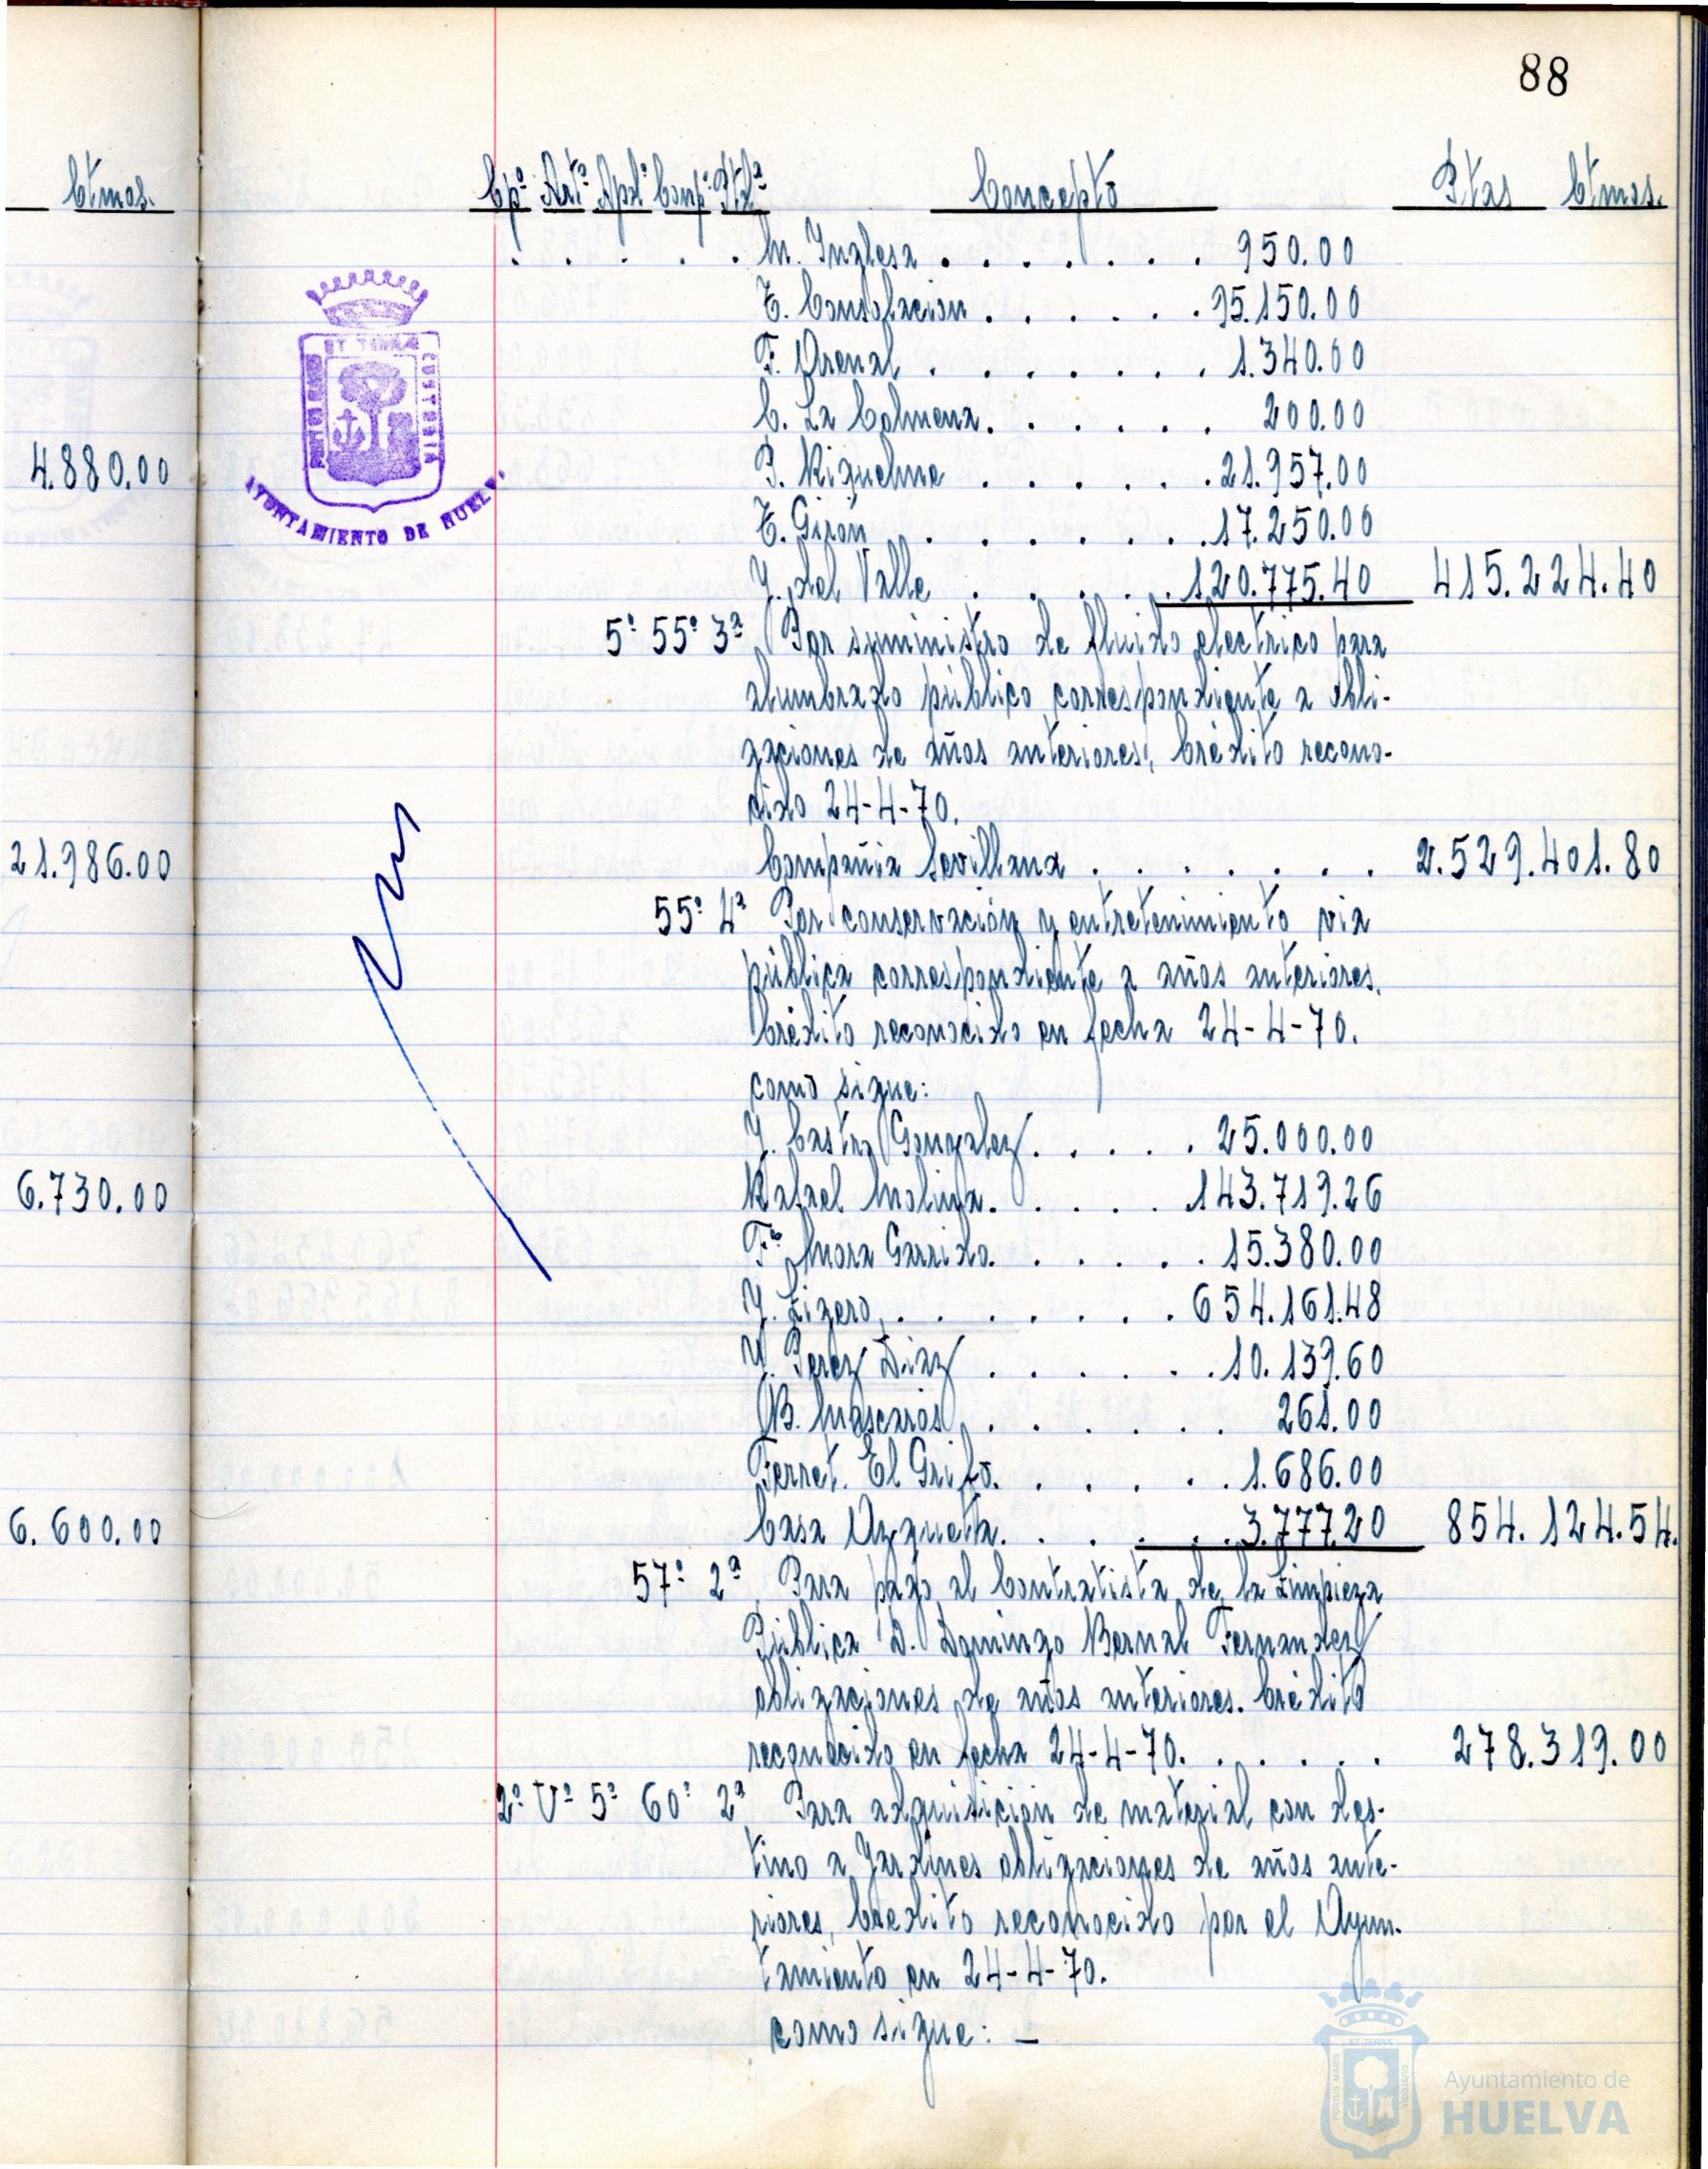 88
Ctmos.
Cpº Artº Apdº Conpº Ptdª Concepto Ptas Ctmos.
. . . . . M. Inglesa . . . . . . . 950.00
E. Consolacion . . . . . . 95.150.00
F. Arenal . . . . . . . 1.340.00
C. La Colmena . . . . . . 200.00
4.880.00
P. Riquelme . . . . . . 21.957.00
E. Girón . . . . . . . 17.250.00
J. del Valle . . . . . 120.775.40 415.224.40
5º 55º 3ª Por suministro de fluido electrico para
alumbrado público correspondiente a obli-
gaciones de años anteriores, Crédito recono-
cido 24-4-70.
21.986.00
Compañia Sevillana . . . . . . . 2.529.401.80
55º 4ª Por conservación y entretenimiento via
pública correspondiente a años anteriores.
Crédito reconocido en fecha 24-4-70.
como sigue:
J. Castro Gonzalez . . . . . 25.000.00
6.730.00
Rafael Molina . . . . . 143.719.26
Fº Mora Garrido . . . . . . 15.380.00
J. Ligero . . . . . . . 654.161.48
J. Perez Diaz . . . . . . 10.139.60
B. Mascarós . . . . . . 261.00
Ferret. El Grifo. . . . . . 1.686.00
6.600.00
Casa Azqueta. . . . . . 3.777.20 854.124.54.
57º 2ª Para pago al Contratista de la Limpieza
Pública D. Domingo Bernal Fernandez
obligaciones de años anteriores. Crédito
reconocido en fecha 24-4-70. . . . . . 278.319.00
2º Vº 5º 60º 2ª Para adquisición de material con des-
tino a Jardines obligaciones de años ante-
riores, Credito reconocido por el Ayun-
tamiento en 24-4-70.
como sigue: —
ET TERRÆ
CUSTODIA
AYUNTAMIENTO DE HUELVA
ET TERRIS
PORTUS MARIS
CUSTODIA
Ayuntamiento de
HUELVA